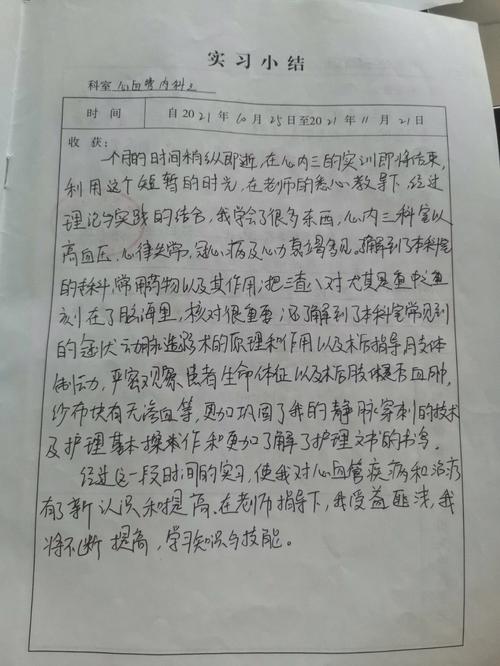 实习小结
科室 心血管内科三
时间 自2021年10月25日至2021年11月21日
收获：
一个月的时间稍纵即逝，在心内三的实训即将结束，
利用这个短暂的时光，在老师的悉心教导下，经过
理论与实践的结合，我学会了很多东西，心内三科室以
高血压、心律失常，冠心病及心力衰竭多见，了解到了本科室
的专科，常用药物以及其作用；把三查八对尤其是查中查
刻在了脑海里，核对很重要；还了解到了本科室常见到
的冠状动脉造影术的原理和作用以及术后指导，肢体
制动，严密观察患者生命体征以及术后肢体是否血肿，
纱布块有无渗血等，更加巩固了我的静脉穿刺的技术
及护理基本操作和更加了解了护理文书的书写。
经过这一段时间的实习，使我对心血管疾病和治疗
有了新认识和提高，在老师指导下，我受益匪浅，我
将不断提高，学习知识与技能。